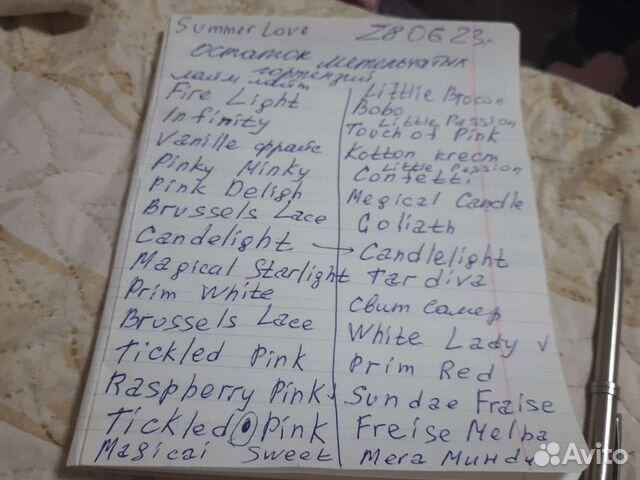 Summer Love 28.06.23г
остаток метельчатых
гортензий
лайм лайт
Fire Light
Infinity
Vanille фрайс
Pinky Minky
Pink Deligh
Brussels Lace
Candelight →
Magical Starlight
Prim White
Brussels Lace
Tickled Pink
Raspberry Pink
Tickled Pink
Magical Sweet
Little
Bobo
Little Passion
Touch of Pink
Kotton krecm
Little Passion
Confetti
Megical Candle
Goliath
Candlelight
Tardiva
Свит самер
White Lady ✓
Prim Red
Sundae Fraise
Freise Melba
Мега Минди
Avito